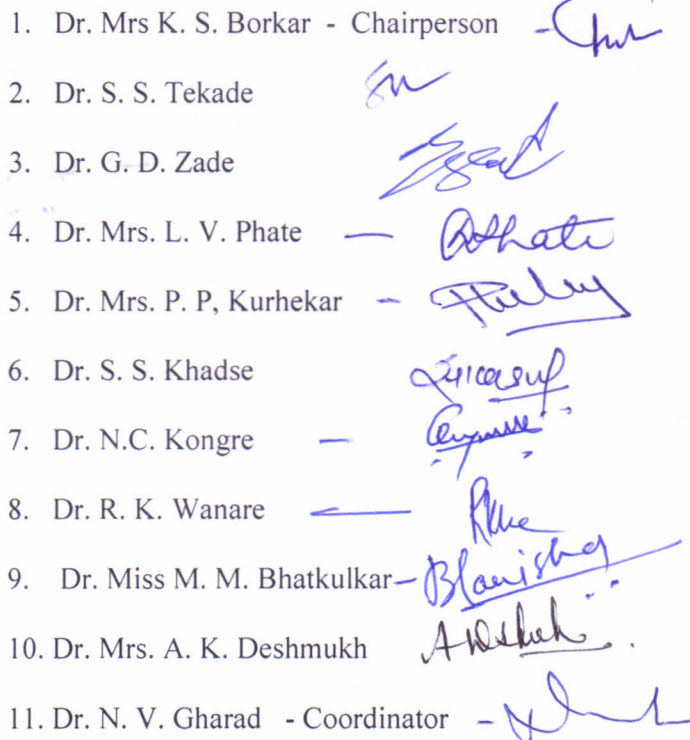 1. Dr. Mrs K. S. Borkar - Chairperson -
2. Dr. S. S. Tekade
3. Dr. G. D. Zade
4. Dr. Mrs. L. V. Phate —
5. Dr. Mrs. P. P, Kurhekar -
6. Dr. S. S. Khadse
7. Dr. N.C. Kongre -
8. Dr. R. K. Wanare —
9. Dr. Miss M. M. Bhatkulkar -
10. Dr. Mrs. A. K. Deshmukh
11. Dr. N. V. Gharad - Coordinator -